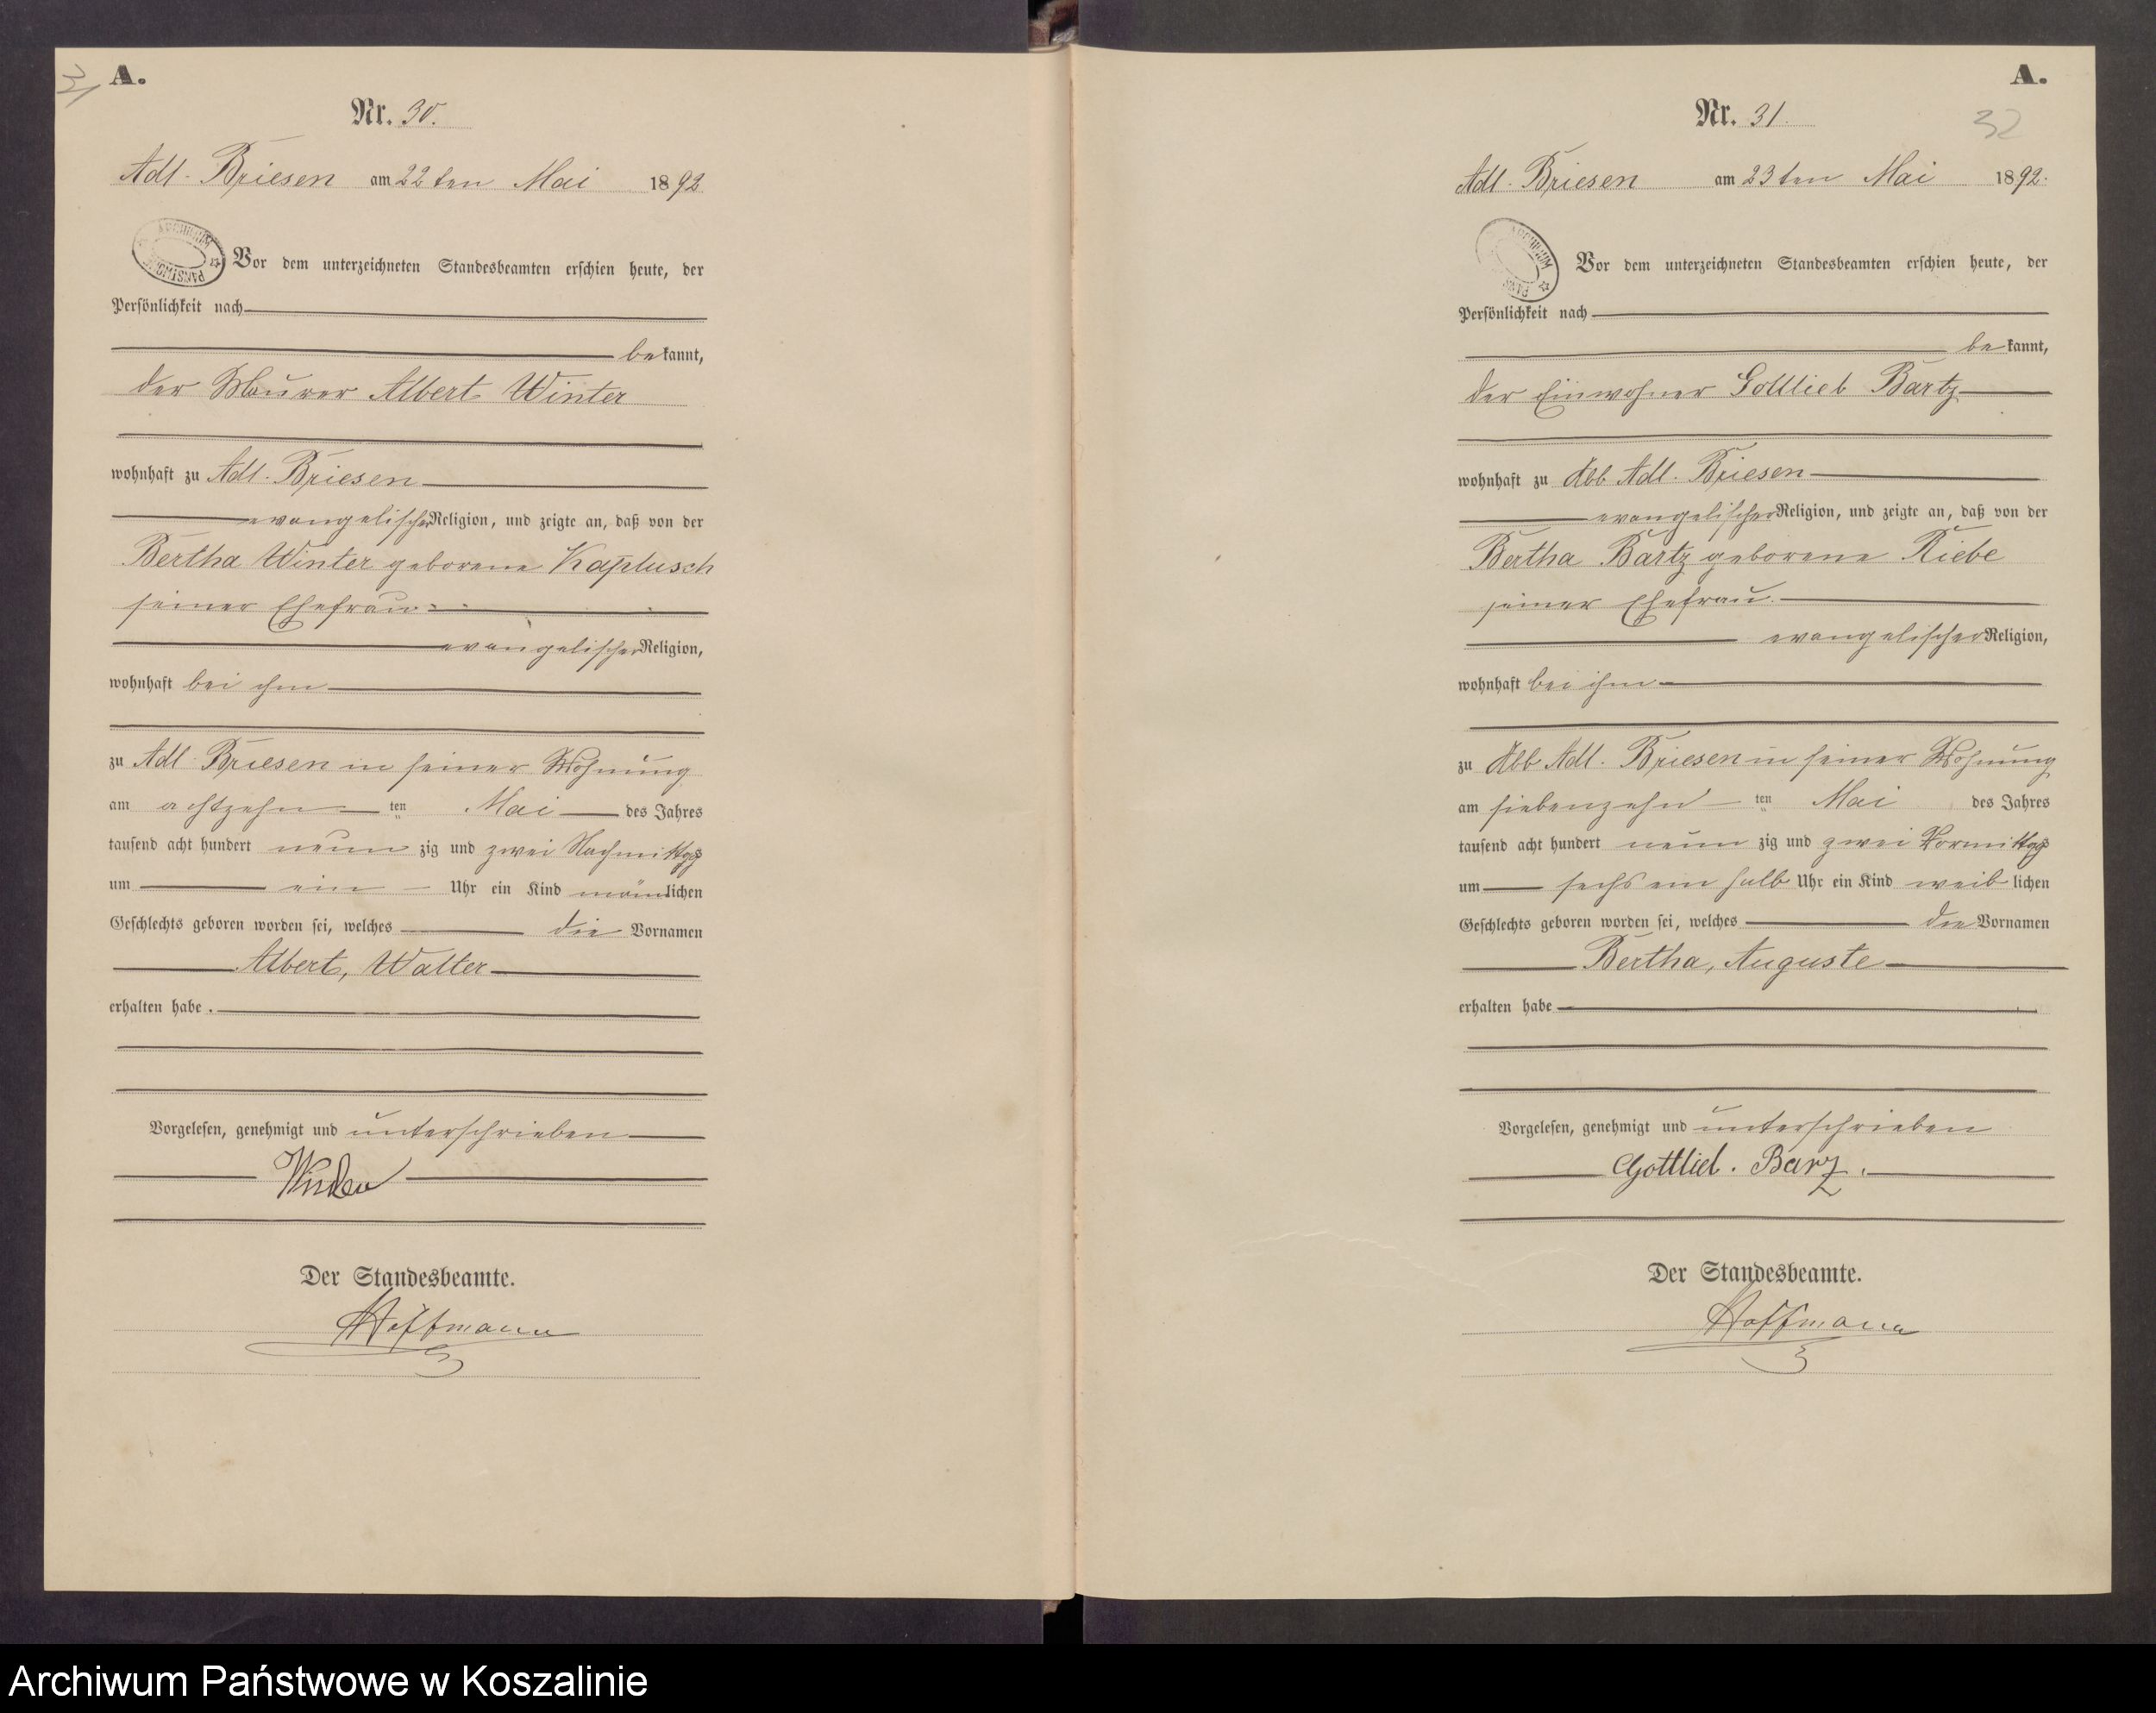 31
A.
Nr. 30.
Adl. Briesen am 22ten Mai 1892
ARCHIWUM PAŃSTWOWE
Vor dem unterzeichneten Standesbeamten erschien heute, der
Persönlichkeit nach
bekannt,
der Maurer Albert Winter
wohnhaft zu Adl. Briesen
evangelischer Religion, und zeigte an, daß von der
Bertha Winter geborene Kaplusch
seiner Ehefrau
evangelischer Religion,
wohnhaft bei ihm
zu Adl Briesen in seiner Wohnung
am achtzehn ten Mai des Jahres
tausend acht hundert neun zig und zwei Nachmittgs
um ein Uhr ein Kind männlichen
Geschlechts geboren worden sei, welches die Vornamen
Albert, Walter
erhalten habe.
Vorgelesen, genehmigt und unterschrieben
Der Standesbeamte.
Hoffmann
A.
Nr. 31.
32
Adl. Briesen am 23ten Mai 1892.
Vor dem unterzeichneten Standesbeamten erschien heute, der
Persönlichkeit nach
bekannt,
der Einwohner Gottlieb Bartz
wohnhaft zu Abb Adl. Briesen
evangelischer Religion, und zeigte an, daß von der
Bertha Bartz geborene Riebe
seiner Ehefrau.
evangelischer Religion,
wohnhaft bei ihm
zu Abb Adl. Briesen in seiner Wohnung
am siebenzehn ten Mai des Jahres
tausend acht hundert neun zig und zwei Vormittgs
um sechs ein halb Uhr ein Kind weiblichen
Geschlechts geboren worden sei, welches die Vornamen
Bertha, Auguste
erhalten habe
Vorgelesen, genehmigt und unterschrieben
Gottlieb. Barz.
Der Standesbeamte.
Hoffmann
Archiwum Państwowe w Koszalinie